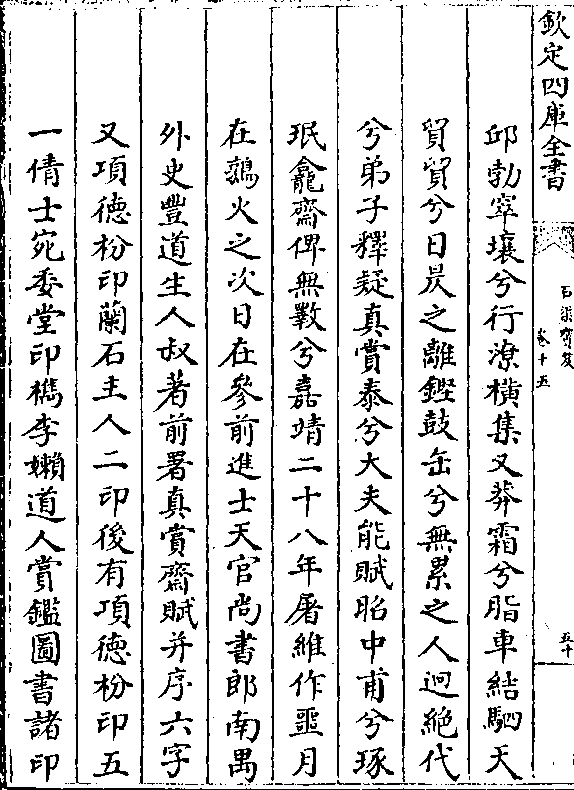 欽定四庫全書
石渠寶笈
卷十五
五十
邱勃窣壤兮行潦橫集又莽霜兮脂車結駟天
貿貿兮日昃之離鏗鼓缶兮無累之人迥絶代
兮弟子釋疑真賞泰兮大夫能賦昭中甫兮琢
珉龕齋俾無斁兮嘉靖二十八年屠維作噩月
在鶉火之次日在參前進士天官尚書郎南禺
外史豐道生人叔著前署真賞齋賦并序六字
又項德枌印蘭石主人二印後有項德枌印五
一倩士宛委堂印檇李嬾道人賞鑑圖書諸印